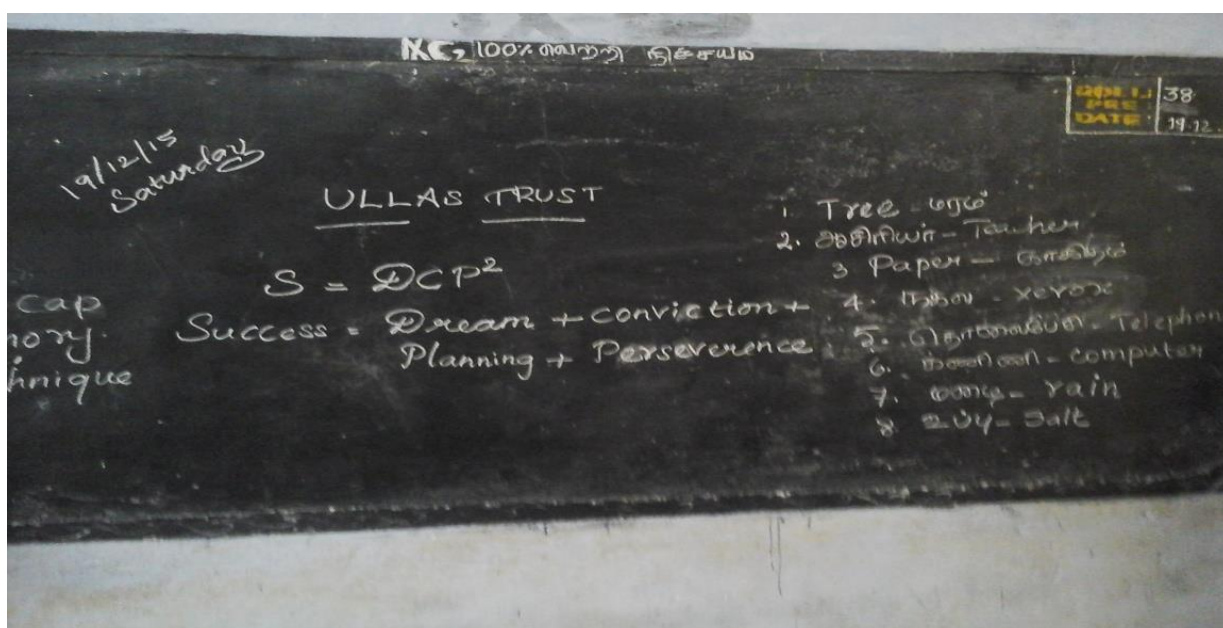 100% வெற்றி நிச்சயம்
ROLL 38
PRE
DATE 19.12.
19/12/15
Saturday
ULLAS TRUST
S = DCP²
Success = Dream + conviction +
Planning + Perseverence
cap
hnique
1 Tree - மரம்
2. ஆசிரியர் - Teacher
3 Paper - காகிதம்
4. நகல் - xerox
5. தொலைபேசி - Telephon
6. கணினி - computer
7. மழை - rain
8 உப்பு - Salt